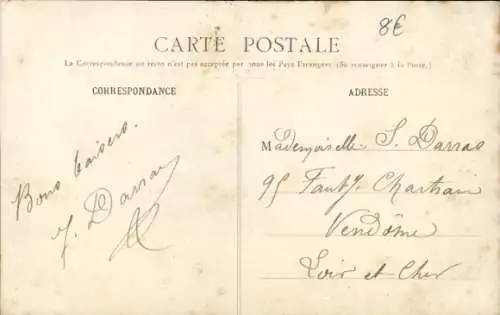 8€
CARTE POSTALE
La Correspondance au recto n'est pas acceptée par tous les Pays Etrangers. (Se renseigner à la Poste.)
CORRESPONDANCE
ADRESSE
Bons baisers.
J. Darras
Mademoiselle S. Darras
95 Faub. Chartrain
Vendôme
Loir et Cher